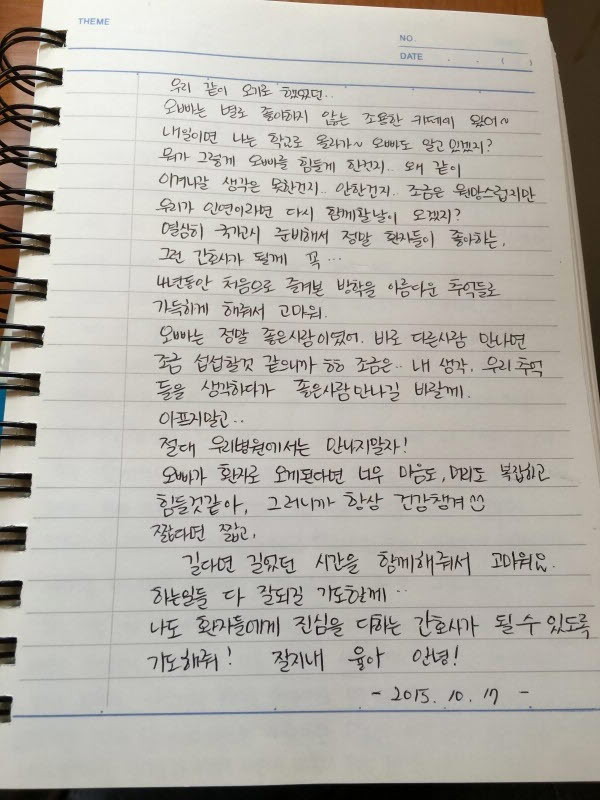 THEME
NO.
DATE . . ( )
우리 같이 오기로 했었던..
오빠는 별로 좋아하지 않는 조용한 카페에 왔어~
내일이면 나는 학교로 올라가~ 오빠도 알고 있겠지?
뭐가 그렇게 오빠를 힘들게 한건지.. 왜 같이
이겨나갈 생각은 못한건지.. 안한건지.. 조금은 원망스럽지만
우리가 인연이라면 다시 함께할날이 오겠지?
열심히 국가고시 준비해서 정말 환자들이 좋아하는,
그런 간호사가 될게 꼭...
4년동안 처음으로 즐겨본 방학을 아름다운 추억들로
가득하게 해줘서 고마워.
오빠는 정말 좋은사람이였어. 바로 다른사람 만나면
조금 섭섭할것 같으니까 ㅎㅎ 조금은.. 내 생각, 우리 추억
들을 생각하다가 좋은사람만나길 바랄께.
아프지말고..
절대 우리병원에서는 만나지말자!
오빠가 환자로 오게된다면 너무 마음도, 머리도 복잡하고
힘들것같아, 그러니까 항상 건강챙겨
짧다면 짧고,
길다면 길었던 시간을 함께해줘서 고마워요.
하는일들 다 잘되길 기도할께..
나도 환자들에게 진심을 다하는 간호사가 될 수 있도록
기도해줘! 잘지내 윤아 안녕!
- 2015. 10. 17 -